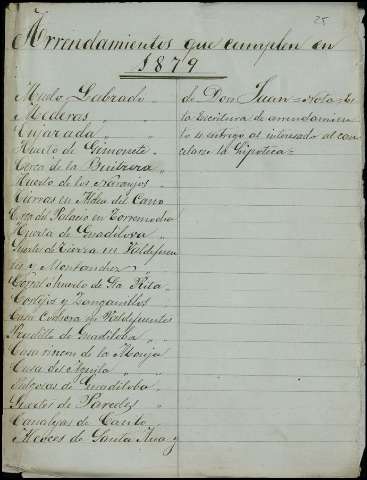 25
Arrendamientos que cumplen en
1879
Medo Labrado
Mederas
Enjarada
Huerto de Gimonete
Cerca de la Buitrera
Huerto de los Naranjos
Tierras en Aldea del Cano
Casa del Palacio en Torremocha
Huerta de Guadiloba
Suerte de tierra en Valdefuen
tes y Montanchez
Corral o huerto de Sta Rita
Cortijos y Zanganillos
Casa Corchera y Valdefuentes
Pradillo de Guadiloba
Casa rincon de la Monja
Casa del Aguila
de Guadiloba
Suertes de Paredes
Canalejas de Canto
Alcoces de Santa Ana y
de Don Juan = Nota = En
la Escritura de arrendamien
to se entrego al interesado al can
celarse la hipoteca =